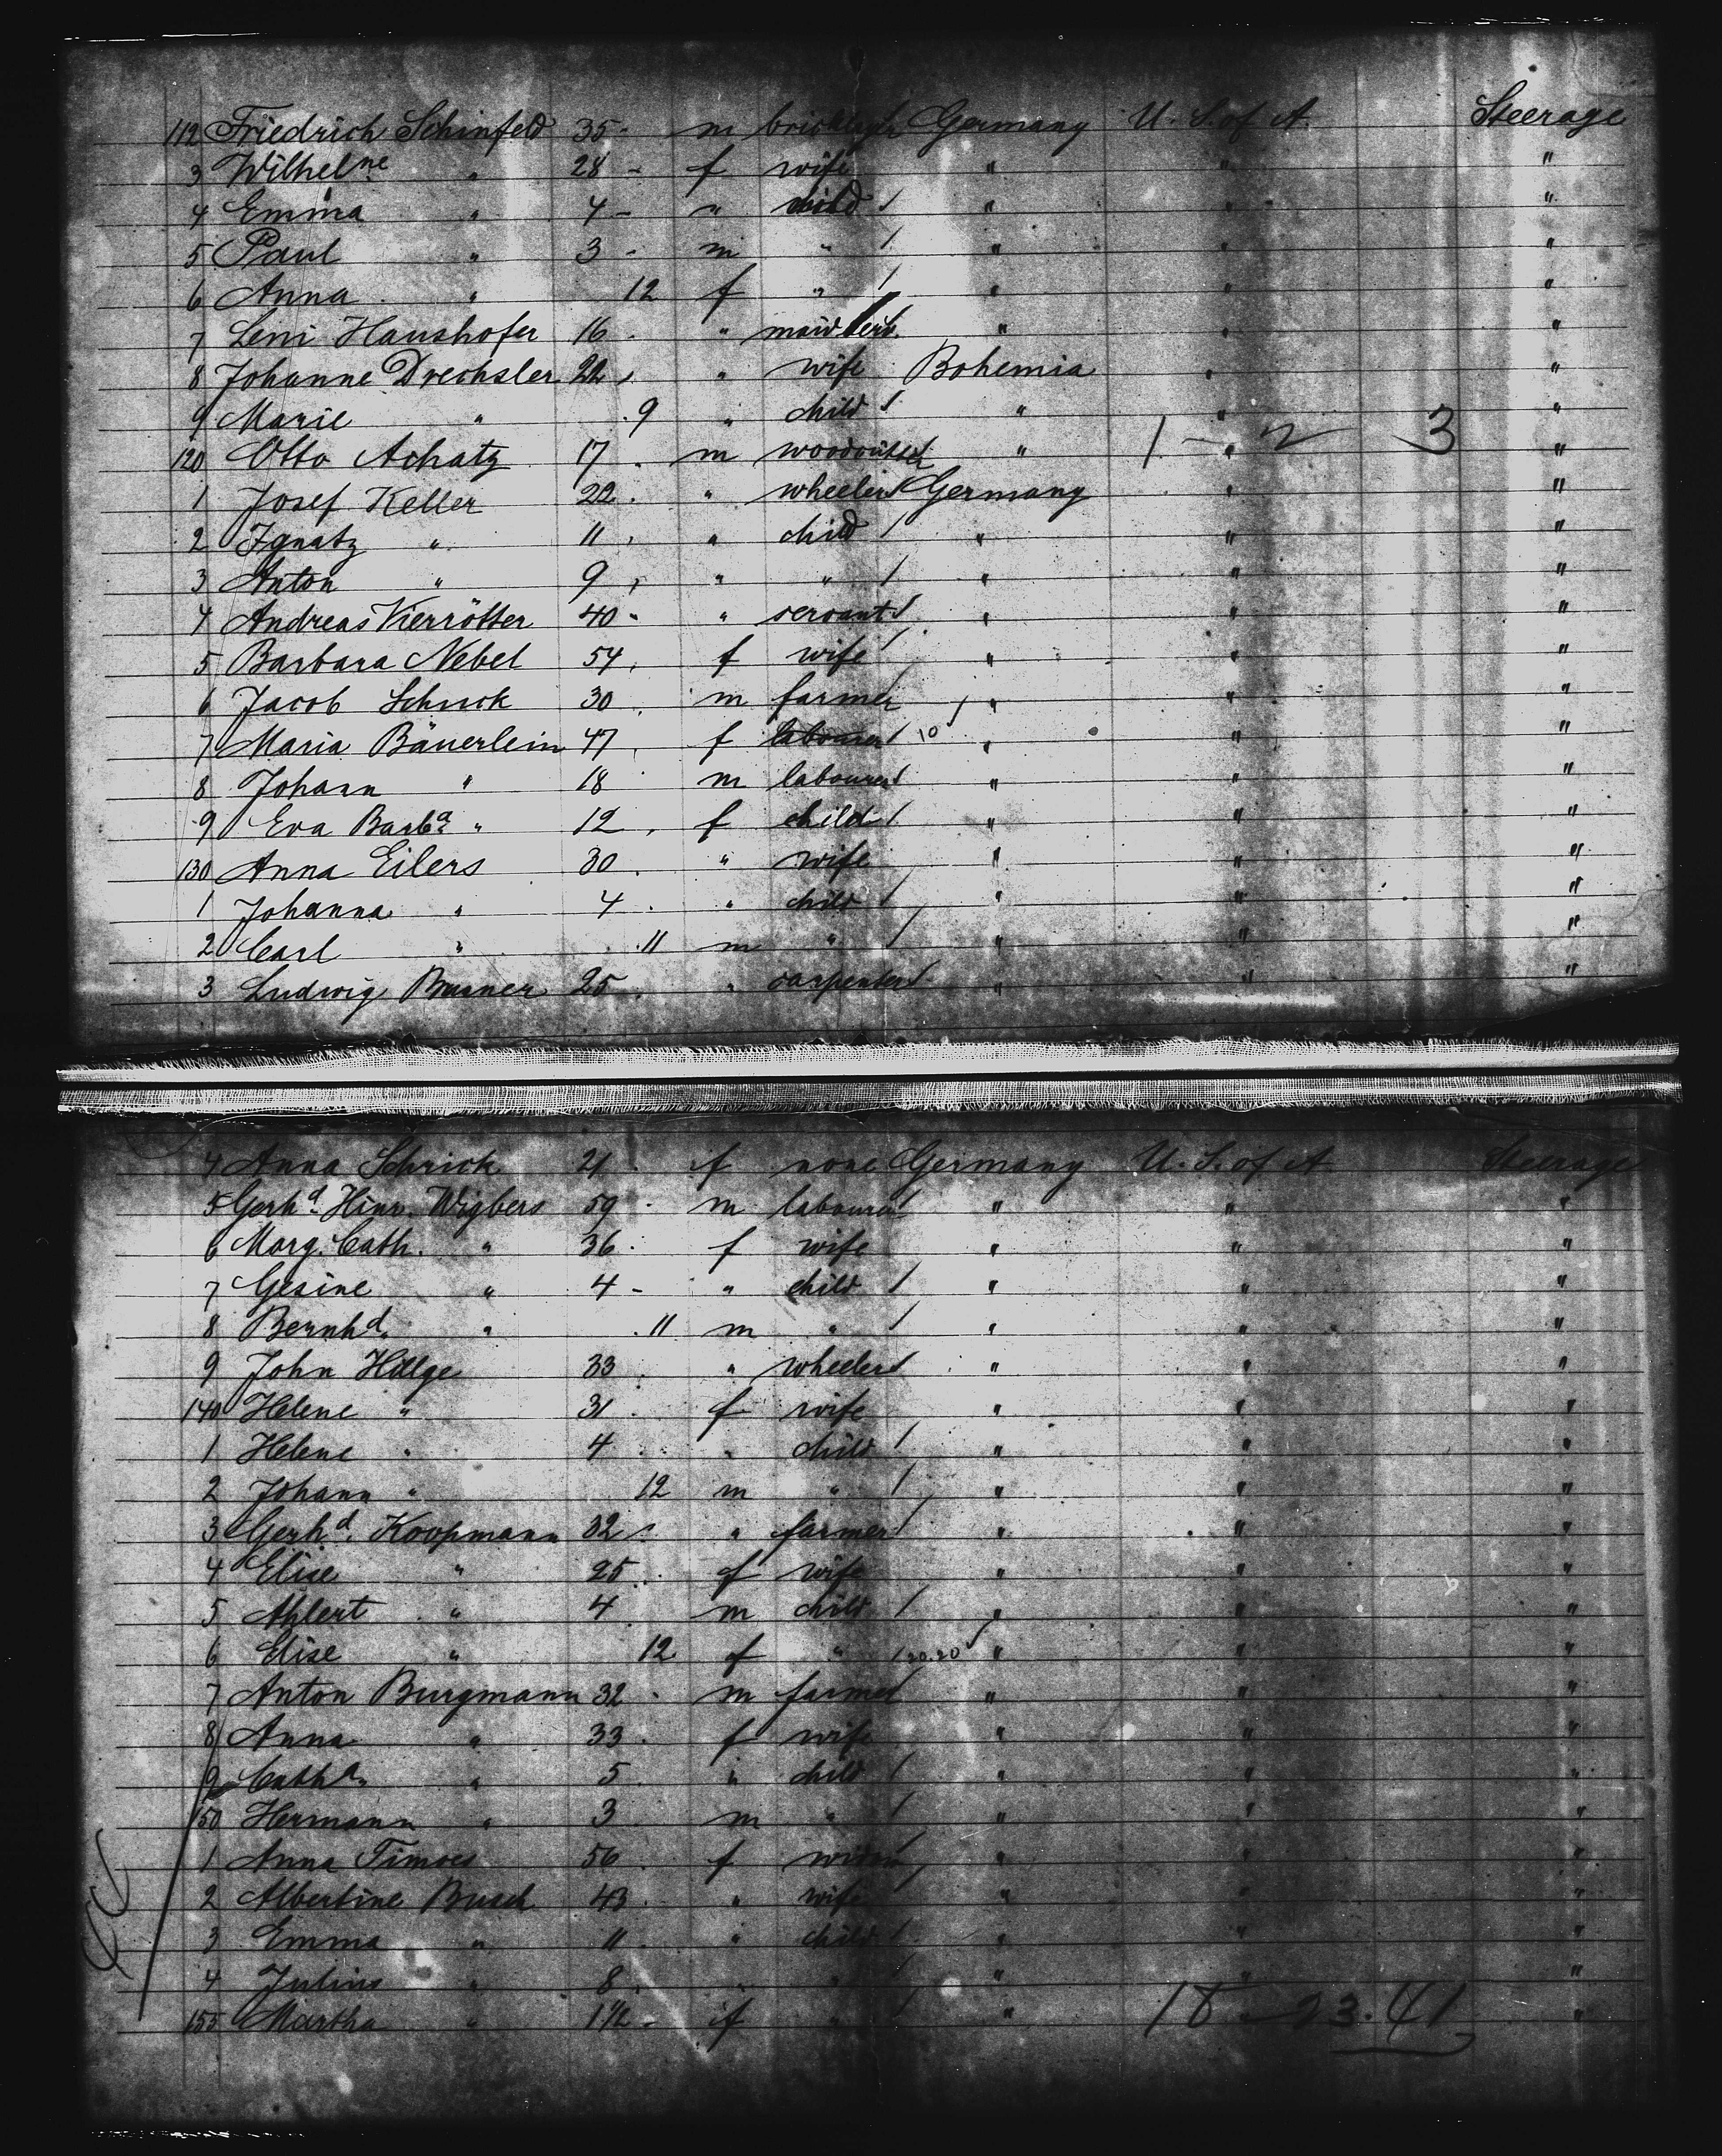 112 Friedrich Schinfeld 35 - m bricklayer Germany U. S. of A. Steerage
3 Wilhelne " 28 - f wife " " "
4 Emma " 4 - " child / " " "
5 Paul " 3 - m " / " " "
6 Anna " 12 f " / " " "
7 Leni Haushofer 16 - " maid " " "
8 Johanne Drechsler 22 , " wife Bohemia " "
9 Marie " . 9 " child / " " "
120 Otto Achatz 17 . m woodcutter " " " 1 - 2 3
1 Josef Keller 22 . " wheeler Germany " "
2 Ignatz " 11 , " child / " " "
3 Anton " 9 , " " / " " "
4 Andreas Vierrötter 40 - " servant / " " "
5 Barbara Nebel 54 , f wife / " " "
6 Jacob Schuck 30 . m farmer / " " "
7 Maria Bäuerlein 47 , f labourer / 10 " " "
8 Johann " 18 . m labourer / " " "
9 Eva Barba " 12 , f child / " " "
130 Anna Eilers 30 . " wife " " "
1 Johanna " 4 . " child / " " "
2 Carl " . 11 m " / " " "
3 Ludwig 25 . " carpenter / " " "
4 Anna Schrick 21 . f none Germany U. S. of A Steerage
5 Gerhd. Hinr. Wigbers 59 . m labourer / " " "
6 Marg. Cath. " 36 . f wife " " "
7 Gesine " 4 - " child / " " "
8 Bernhd. " . 11 m " / " " "
9 John Hillge 33 . " wheeler / " " "
140 Helene " 31 . f wife " " "
1 Helene " 4 . " child / " " "
2 Johann " 12 m " / " " "
3 Gerhd. Koopmann 32 . " farmer / " " "
4 Elise " 25 . f wife " " "
5 Ahlert " 4 m child / " " "
6 Elise " 12 f " / 20.20 " " "
7 Anton Burgmann 32 . m farmer " " "
8 Anna " 33 . f wife " " "
9 Catha. " 5 . " child / " " "
150 Hermann " 3 m " / " " "
1 Anna 56 . f widow " " "
2 Albertine Busch 43 . " wife " " "
3 Emma " 11 . " child / " " "
4 Julius " 8 . " / " " "
155 Martha " 1 1/2 - f " / " " " 18 - 23 . 41